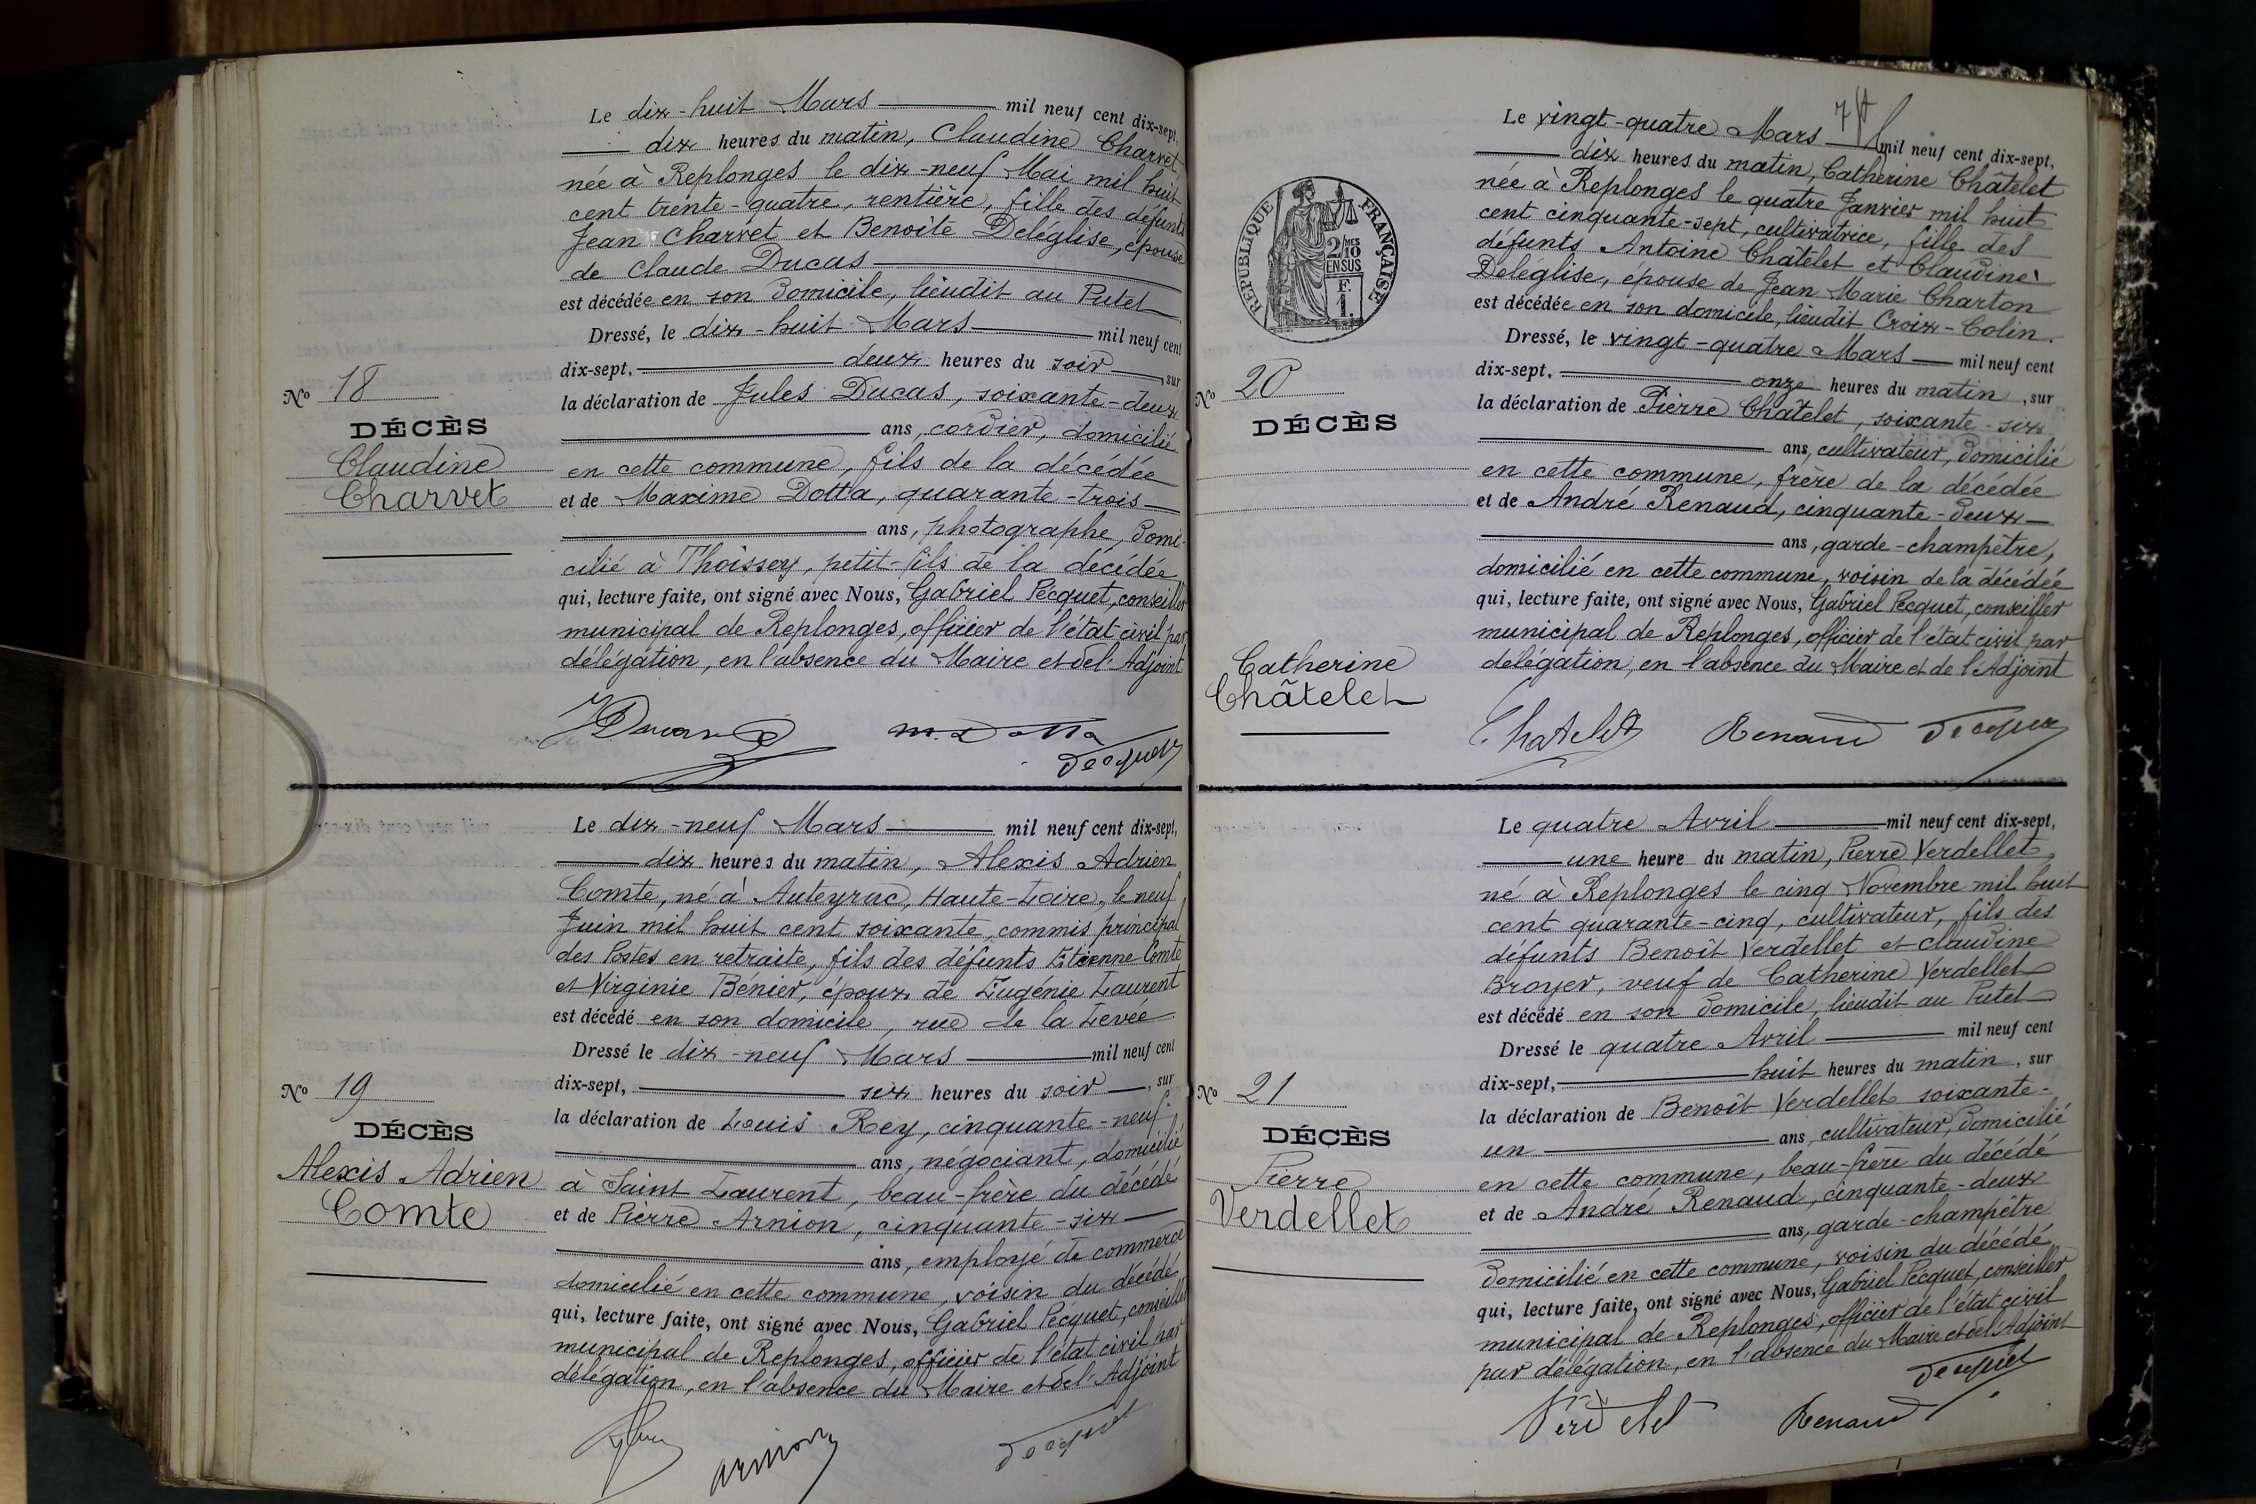 Le dix-huit Mars mil neuf cent dix-sept,
dix heures du matin, Claudine Charvet,
née à Replonges le dix-neuf Mai mil huit
cent trente-quatre, rentière, fille des défunts
Jean Charvet et Benoîte Deléglise, épouse
de Claude Ducas
est décédée en son domicile, lieudit au Putet
Dressé, le dix-huit Mars mil neuf cent
dix-sept, deux heures du soir, sur
No 18
la déclaration de Jules Ducas, soixante-deux
DÉCÈS
ans, cordier, domicilié
Claudine
en cette commune, fils de la décédée
Charvet
et de Maxime Dotta, quarante-trois
ans, photographe, domi-
cilié à Thoissey, petit-fils de la décédée
qui, lecture faite, ont signé avec Nous, Gabriel Pecquet, conseiller
municipal de Replonges, officier de l'état civil par
délégation, en l'absence du Maire et de l'Adjoint
Le dix-neuf Mars mil neuf cent dix-sept,
dix heures du matin, Alexis Adrien
Comte, né à Auteyrac, Haute-Loire, le neuf
Juin mil huit cent soixante, commis principal
des Postes en retraite, fils des défunts Etienne Comte
et Virginie Bénier, époux de Eugénie Laurent
est décédé en son domicile, rue de la Levée
Dressé le dix-neuf Mars mil neuf cent
No 19
dix-sept, six heures du soir, sur
la déclaration de Louis Rey, cinquante-neuf
DÉCÈS
ans, négociant, domicilié
Alexis Adrien
à Saint Laurent, beau-frère du décédé
Comte
et de Pierre Arnion, cinquante-six
ans, employé de commerce
domicilié en cette commune, voisin du décédé
qui, lecture faite, ont signé avec Nous, Gabriel Pecquet, conseiller
municipal de Replonges, officier de l'état civil par
délégation, en l'absence du Maire et de l'Adjoint
arnion
Pecquet
Le vingt-quatre Mars mil neuf cent dix-sept,
dix heures du matin, Catherine Châtelet
née à Replonges le quatre Janvier mil huit
cent cinquante-sept, cultivatrice, fille des
défunts Antoine Châtelet et Claudine
Deléglise, épouse de Jean Marie Charton
est décédée en son domicile, lieudit Croix-Colin.
REPUBLIQUE FRANÇAISE
2/10 MES
EN SUS
F.
1.
Dressé, le vingt-quatre Mars mil neuf cent
No 20
dix-sept, onze heures du matin, sur
la déclaration de Pierre Châtelet, soixante-six
DÉCÈS
ans, cultivateur, domicilié
en cette commune, frère de la décédée
et de André Renaud, cinquante-deux
ans, garde-champêtre,
domicilié en cette commune, voisin de la décédée
qui, lecture faite, ont signé avec Nous, Gabriel Pecquet, conseiller
municipal de Replonges, officier de l'état civil par
Catherine
délégation, en l'absence du Maire et de l'Adjoint
Châtelet
Chatelet Renaud Pecquet
Le quatre Avril mil neuf cent dix-sept,
une heure du matin, Pierre Verdellet,
né à Replonges le cinq Novembre mil huit
cent quarante-cinq, cultivateur, fils des
défunts Benoît Verdellet et Claudine
Broyer, veuf de Catherine Verdellet
est décédé en son domicile, lieudit au Putet
Dressé le quatre Avril mil neuf cent
No 21
dix-sept, huit heures du matin, sur
la déclaration de Benoît Verdellet soixante-
DÉCÈS
un ans, cultivateur, domicilié
Pierre
en cette commune, beau-frère du décédé
Verdellet
et de André Renaud, cinquante-deux
ans, garde-champêtre
domicilié en cette commune, voisin du décédé
qui, lecture faite, ont signé avec Nous, Gabriel Pecquet, conseiller
municipal de Replonges, officier de l'état civil
par délégation, en l'absence du Maire et de l'Adjoint
Pecquet
Renaud